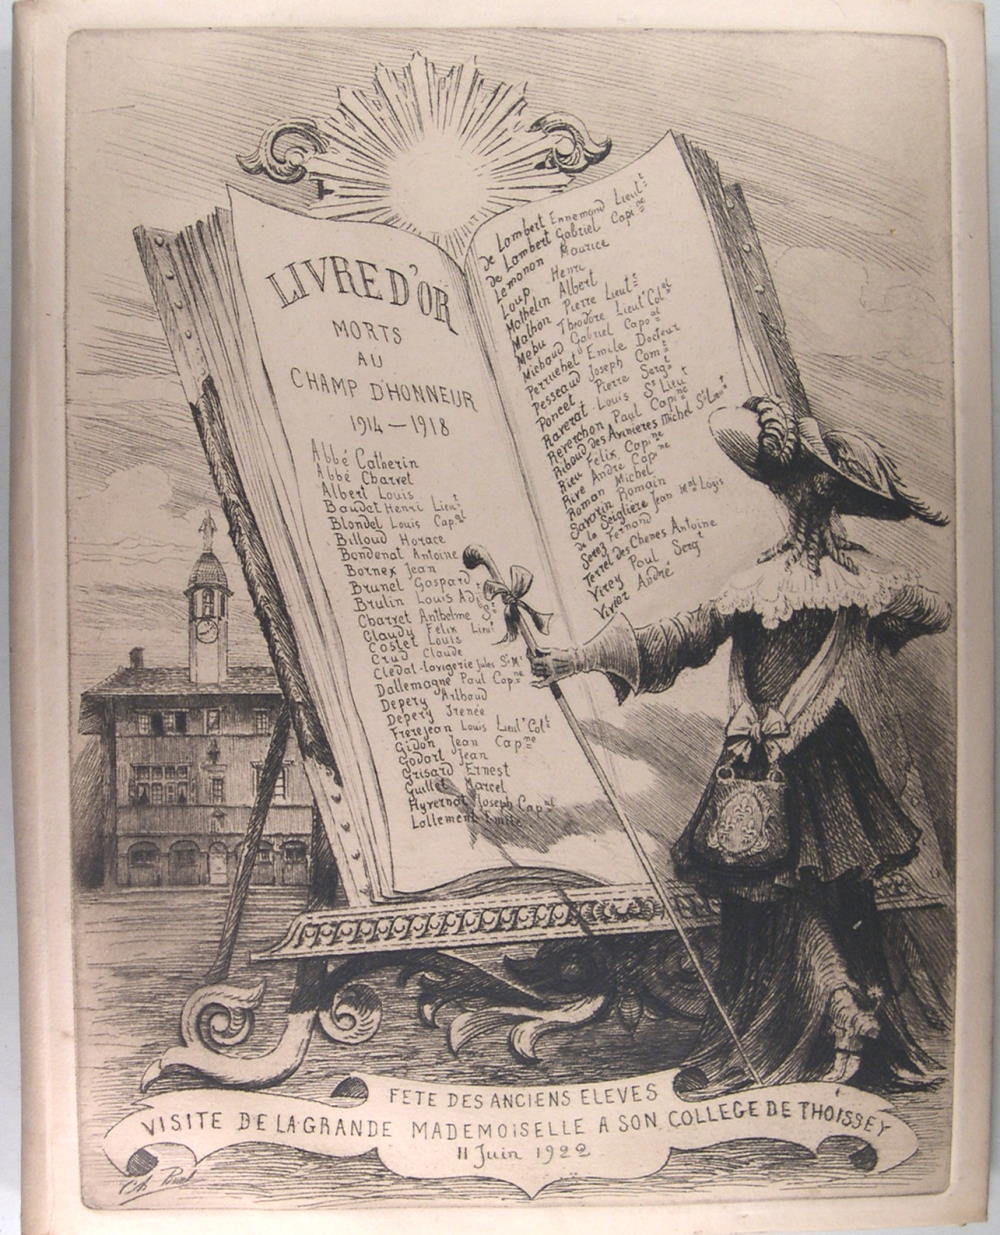 LIVRE D'OR
MORTS
AU
CHAMP D'HONNEUR
1914 — 1918
Abbé Catherin
Abbé Charvet
Albert Louis
Baudet Henri Lieut
Blondel Louis Capal
Billoud Horace
Bondenat Antoine
Bornex Jean
Brunel Gaspard
Brulin Louis Adt
Charvet Anthelme St
Claudy Félix Lieut
Costet Louis
Crud Claude
Clédat-Lavigerie Jules
Dallemagne Paul Capne
Depery Arthaud
Depery Irenée
Frèrejean Louis Lieut Colt
Gidon Jean Capne
Godart Jean
Grisard Ernest
Guillet Marcel
Hyvernat Joseph Capal
Lallement Emile
de Lambert Ennemond Lieutt
de Lambert Gabriel Capne
Lemonon Maurice
Loup Henri
Mathelin Albert
Mathon Pierre Lieutt
Mebu Théodore Lieut Colel
Michaud Gabriel Capoal
Perruchet Emile Docteur
Pesseaud Joseph Comt
Poncet Pierre Sergt
Raverat Louis St Lieut
Reverchon Paul Capine
Riboud des Avinières Michel
Rieu Félix Capine
Rive André Capine
Roman Michel
Savarin Romain
de la Seiglière Jean Mal Logis
Serez Fernand
Terrel des Chenes Antoine
Virey Paul Sergt
Vivier André
FETE DES ANCIENS ELEVES
VISITE DE LA GRANDE MADEMOISELLE A SON COLLEGE DE THOISSEY
11 Juin 1922